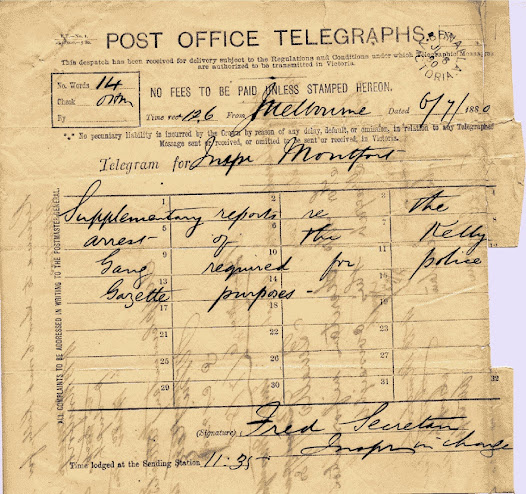 POST OFFICE TELEGRAPHS.
This despatch has been received for delivery subject to the Regulations and Conditions under which Telegraphic Messages
are authorized to be transmitted in Victoria.
No. Words 14
Check
By
NO FEES TO BE PAID UNLESS STAMPED HEREON.
Time rec 12.6 From Melbourne Dated 6/7/1880
No pecuniary liability is incurred by the Crown by reason of any delay, default, or omission, in relation to any Telegraphic
Message sent or received, or omitted to be sent or received, in Victoria.
Telegram for Inspr Montfort
ALL COMPLAINTS TO BE ADDRESSED IN WRITING TO THE POSTMASTER-GENERAL.
1 2 3
Supplementary reports re the
5 6 7
arrest of the Kelly
9 10 11
Gang required for police
13 14 15
Gazette purposes -
17 18 19
21 22 23
25 26 27
29 30 31 32
(Signature) Fred Secretan
Inspr in charge
Time lodged at the Sending Station 11.35